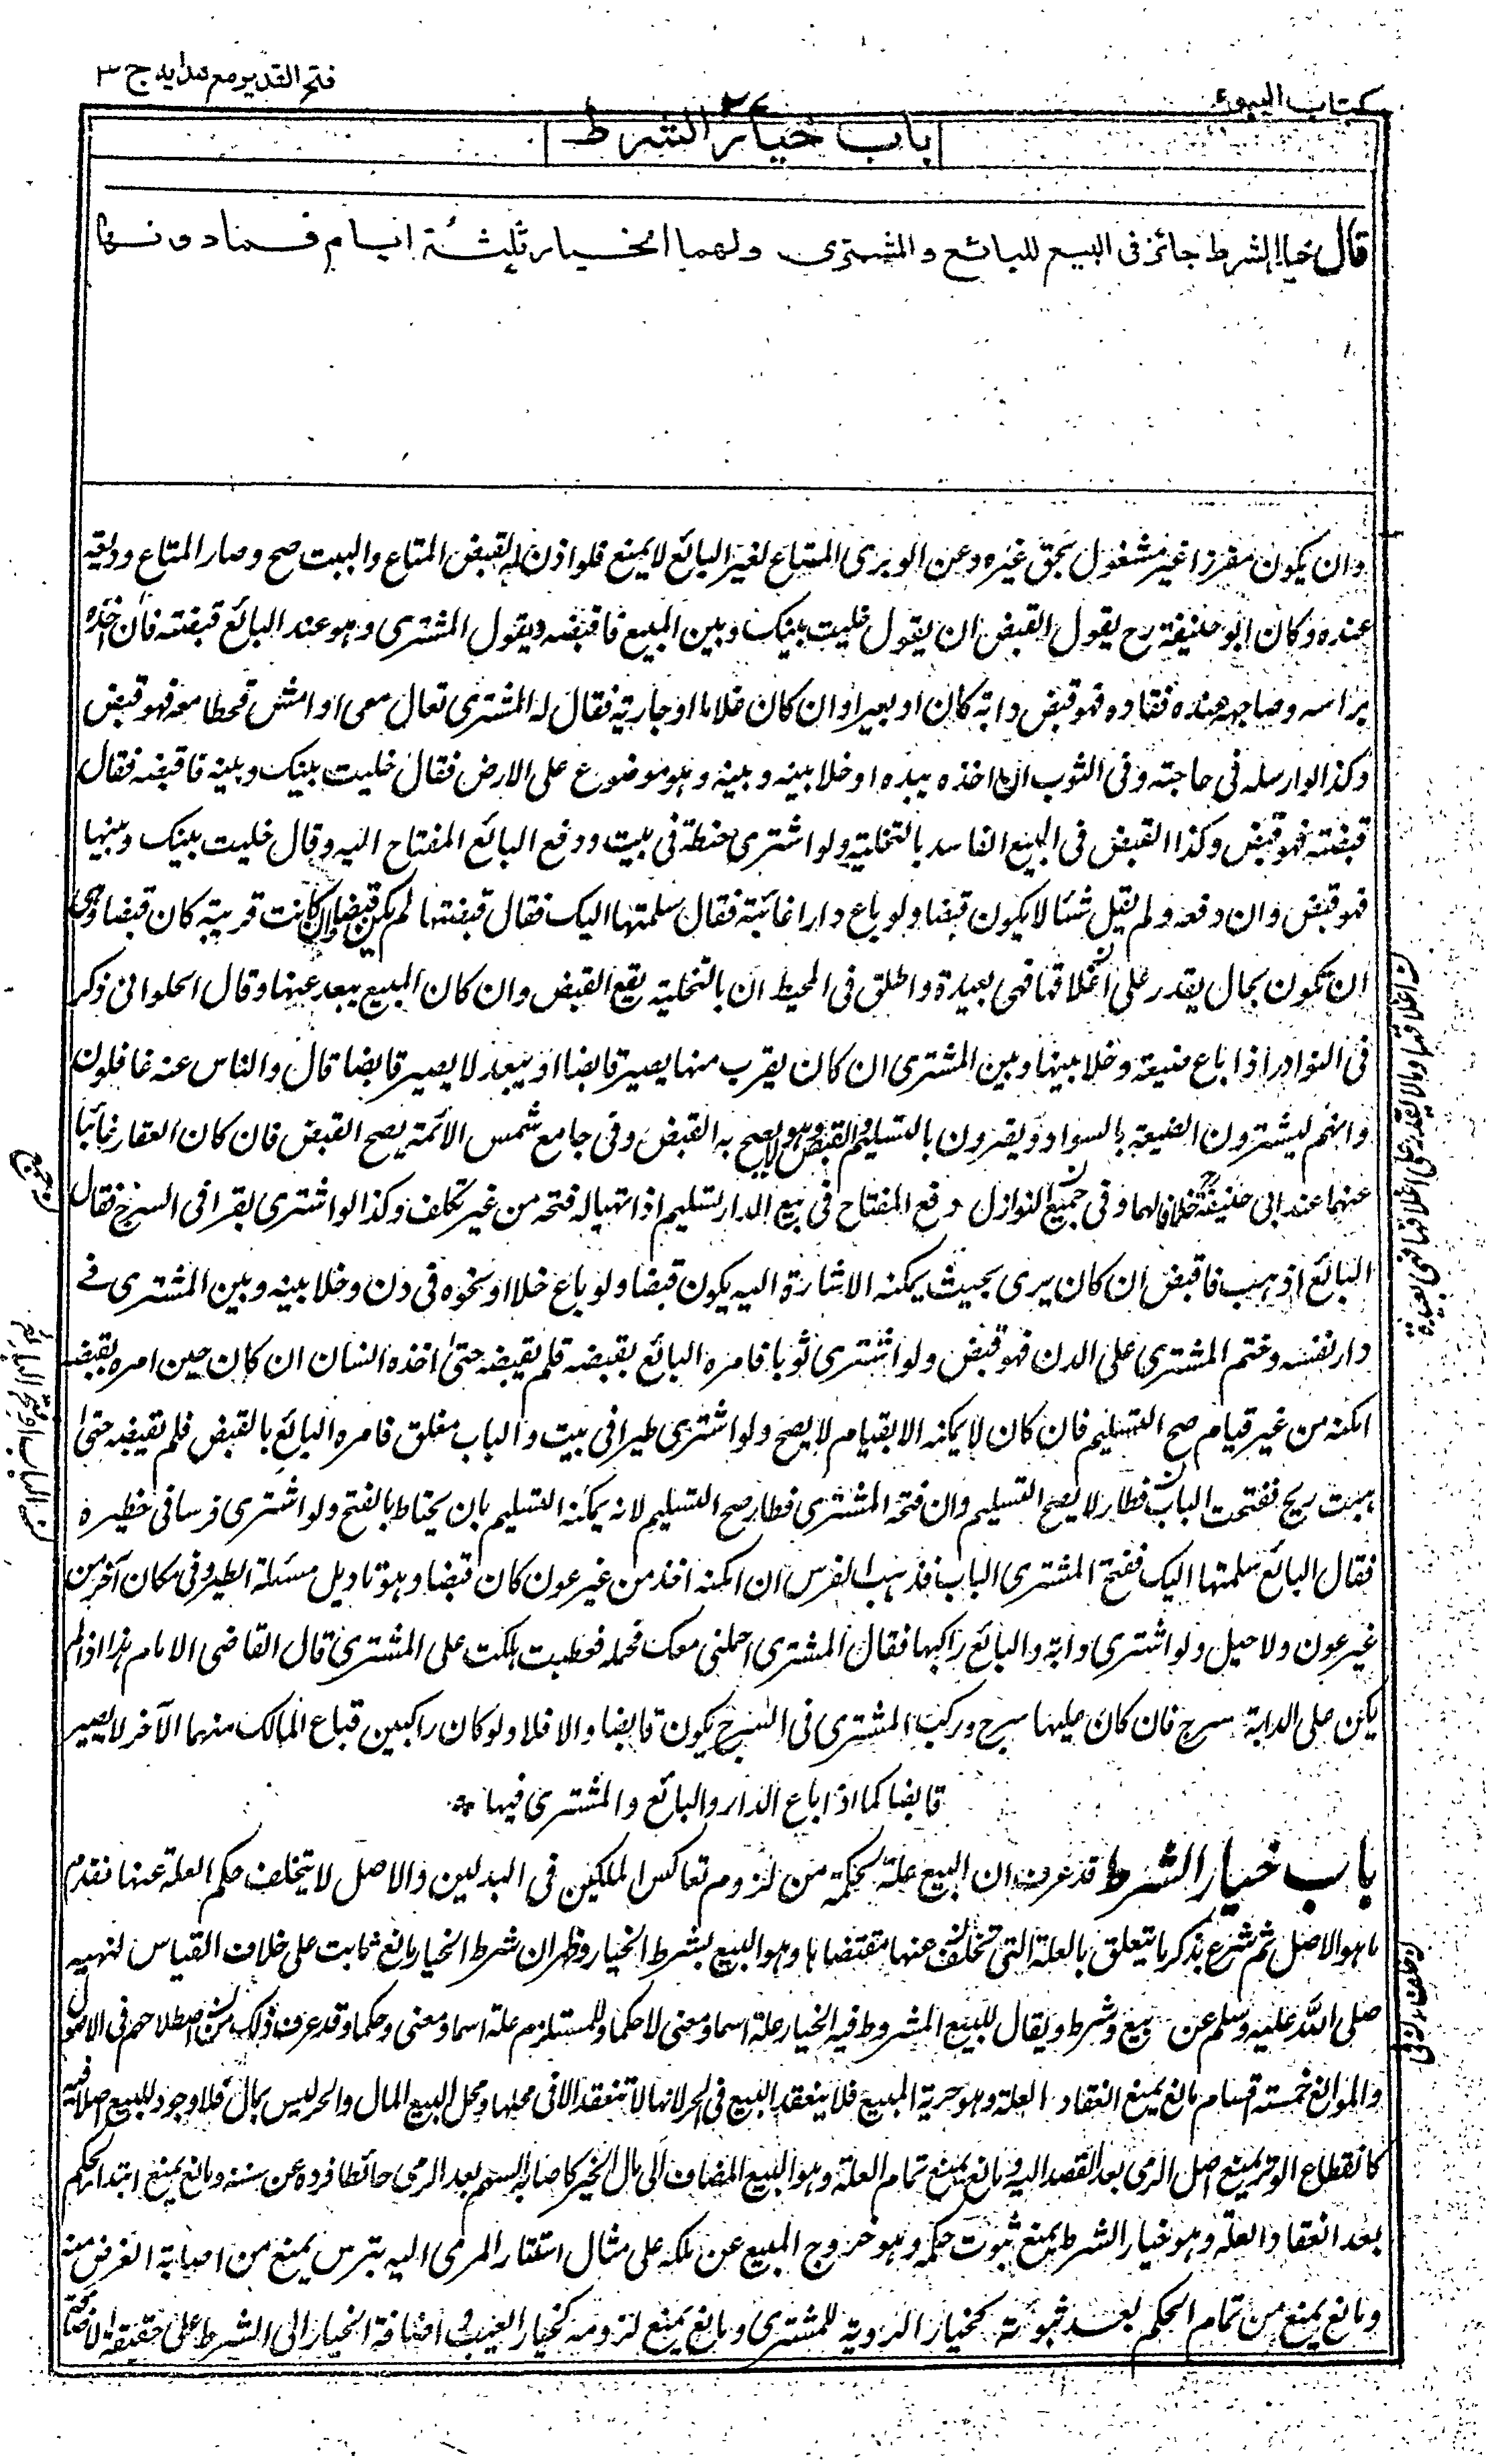 كتاب البيوع
فتح القدير مع هدايه ج ٣
باب خيار الشرط
قال خيار الشرط جائز فى البيع للبائع والمشترى ولهما الخيار ثلثة ايام فمادونها
وان يكون مفرزا غير مشغول بحق غيره وعن الوبرى المتاع لغير البائع لا يمنع فلو اذن له بقبض المتاع والبيت صح وصار المتاع وديعة
عنده وكان ابو حنيفة رح يقول القبض ان يقول خليت بينك وبين المبيع فاقبضه ويقول المشترى وهو عند البائع قبضته فان اخذه
براسه وصاحبه عنده فقاده فهو قبض دابة كان او بعيرا وان كان غلاما او جارية فقال له المشترى تعال معى او امش فخطا معه فهو قبض
وكذا لو ارسله فى حاجته وفى الثوب ان اخذه بيده او خلا بينه وبينه وهو موضوع على الارض فقال خليت بينك وبينه فاقبضه فقال
قبضته فهو قبض وكذا القبض فى البيع الفاسد بالتخلية ولو اشترى حنطة فى بيت ودفع البائع المفتاح اليه وقال خليت بينك وبينها
فهو قبض وان دفعه ولم يقل شئا لا يكون قبضا ولو باع دارا غائبة فقال سلمتها اليك فقال قبضتها لم يكن قبضا وان كانت قريبة كان قبضا وهى
ان تكون بحال يقدر على اغلاقها فهى بعيدة واطلق فى المحيط ان بالتخلية يقع القبض وان كان المبيع يبعد عنها وقال الحلوانى ذكر
فى النوادر اذا باع ضيعة وخلا بينها وبين المشترى ان كان يقرب منها يصير قابضا او يبعد لا يصير قابضا قال والناس عنه غافلون
وانهم ليشترون الضيعة بالسواد ويقرون بالتسليم والقبض وهو لا يصح به القبض وفى جامع شمس الائمة يصح القبض فان كان العقار غائبا
عنهما عند ابى حنيفة خلافا لهما وفى جميع النوازل دفع المفتاح فى بيع الدار تسليم اذا تهيا له فتحه من غير تكلف وكذا لو اشترى بقرا فى السرح فقال
البائع اذهب فاقبض ان كان يرى بحيث يمكنه الاشارة اليه يكون قبضا ولو باع خلا او نحوه فى دن وخلا بينه وبين المشترى فى
دار نفسه وختم المشترى على الدن فهو قبض ولو اشترى ثوبا فامره البائع بقبضه فلم يقبضه حتى اخذه انسان ان كان حين امره بقبضه
امكنه من غير قيام صح التسليم فان كان لا يمكنه الا بقيام لا يصح ولو اشترى طيرا فى بيت والباب مغلق فامره البائع بالقبض فلم يقبضه حتى
هبت ريح ففتحت الباب فطار لا يصح التسليم وان فتحه المشترى فطار صح التسليم لانه يمكنه التسليم بان يحتاط بالفتح ولو اشترى فرسا فى حظيره
فقال البائع سلمتها اليك ففتح المشترى الباب فذهب الفرس ان امكنه اخذ من غير عون كان قبضا وهو تاويل مسئلة الطير وفى مكان آخر من
غير عون ولا حبل ولو اشترى دابة والبائع راكبها فقال المشترى احملنى معك فحمله فعطبت هلكت على المشترى قال القاضى الامام هذا اذا لم
يكن على الدابة سرج فان كان عليها سرج وركب المشترى فى السرج يكون قابضا والا فلا ولو كان راكبين فباع المالك منهما الآخر لا يصير
قابضا كما اذا باع الدار والبائع والمشترى فيها
باب خيار الشرط قد عرف ان البيع علة لحكمه من لزوم تعاكس الملكين فى البدلين والاصل لا يتخلف حكم العلة عنها فقدم
ما هو الاصل ثم شرع يذكر ما يتعلق بالعلة التى تخلف عنها مقتضاها وهو البيع بشرط الخيار وظهر ان شرط الخيار مانع ثابت على خلاف القياس لنهيه
صلى الله عليه وسلم عن بيع وشرط ويقال للبيع المشروط فيه الخيار علة اسما ومعنى لا حكما وللمستلزم علة اسما ومعنى وحكما وقد عرف ذلك من اصطلاحهم فى الاصول
والموانع خمسة اقسام مانع يمنع انعقاد العلة وهو حرية المبيع فلا ينعقد البيع فى الحر لانها لا تنعقد الا فى محلها ومحل البيع المال والحر ليس بمال فلا وجود للبيع اصلا فيه
كانقطاع الوتر يمنع اصل الرمى بعد القصد اليه ومانع يمنع تمام العلة وهو البيع المضاف الى مال الغير كاصابة السهم بعد الرمى حائطا فرده عن سننه ومانع يمنع ابتداء الحكم
بعد انعقاد العلة وهو خيار الشرط يمنع ثبوت حكمه وهو خروج المبيع عن ملكه على مثال استتار المرمى اليه بترس يمنع من اصابة الغرض منه
ومانع يمنع من تمام الحكم بعد ثبوته كخيار الرؤية للمشترى ومانع يمنع لزومه كخيار العيب اضافة الخيار الى الشرط على حقيقة